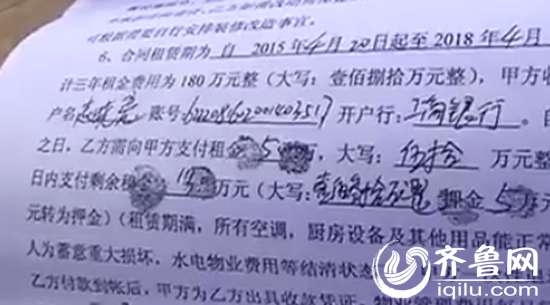 可根据需要自行安排装修改造事宜。
6、合同租赁期为 自 2015年4月20日起至2018年4月
计三年租金费用为180万元整（大写：壹佰捌拾万元整），甲方收
户名 账号 开户行：工商银行。
之日，乙方需向甲方支付租金50万，大写：伍拾 万元整
日内支付剩余租金 万元（大写： 押金5万
元转为押金）（租赁期满，所有空调，厨房设备及其他用品能正常
人为蓄意重大损坏，水电物业费用等结清状态
乙方付款到帐后，甲方为乙方出具收款凭证，物业
齐鲁网
iqilu.com